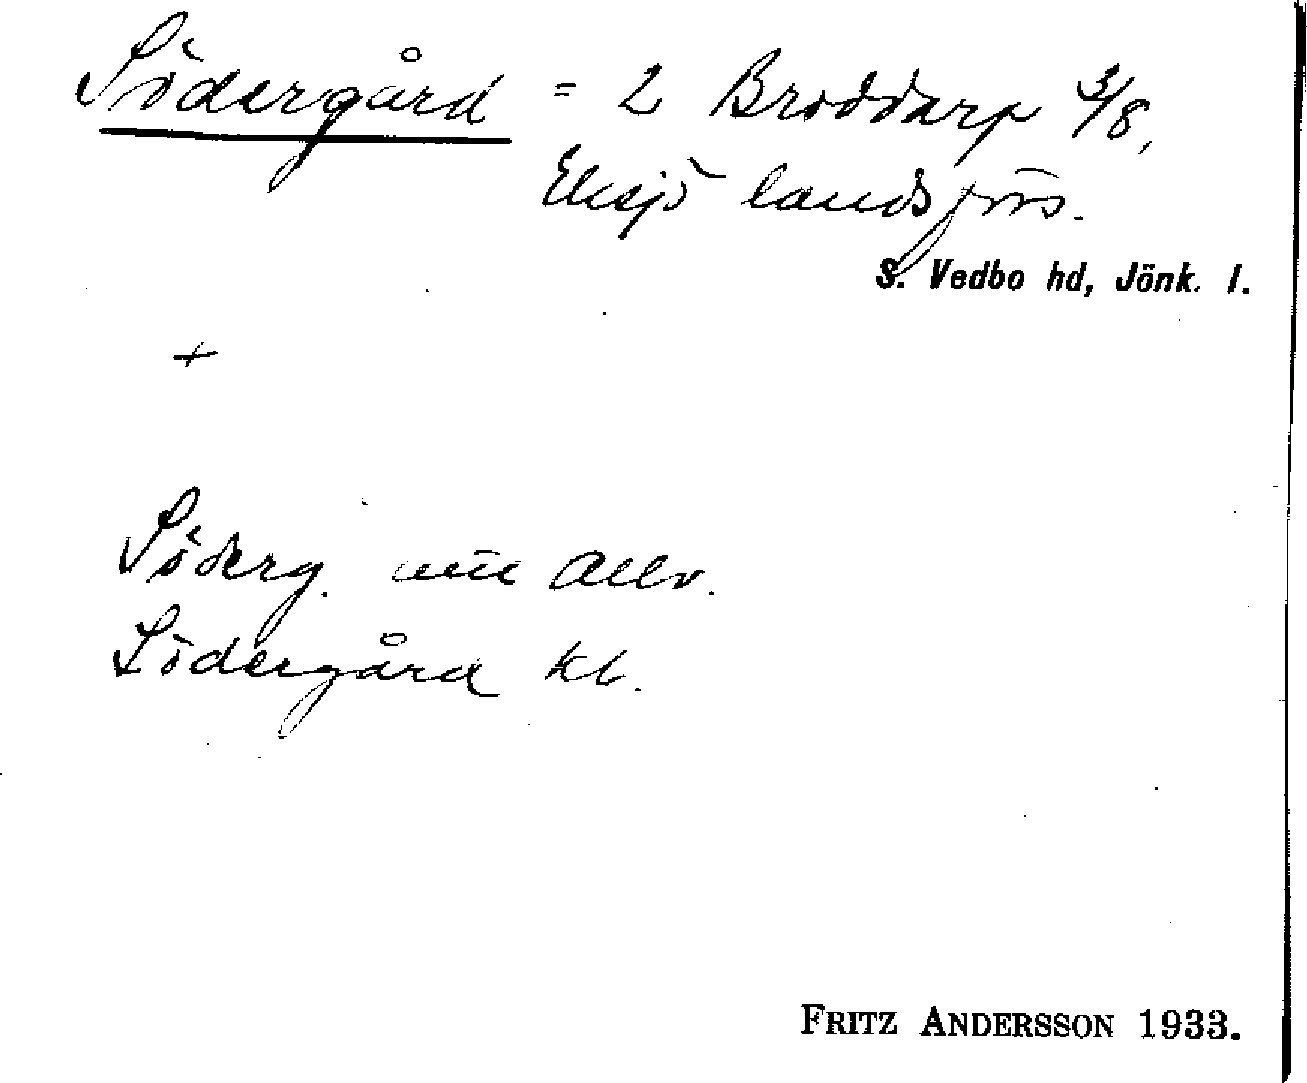 Södergård = 2 Broddarp 3/8,
Eksjö landsförs.
S. Vedbo hd, Jönk. l.
+
Söderg. allv.
Södergård kl.
FRITZ ANDERSSON 1933.